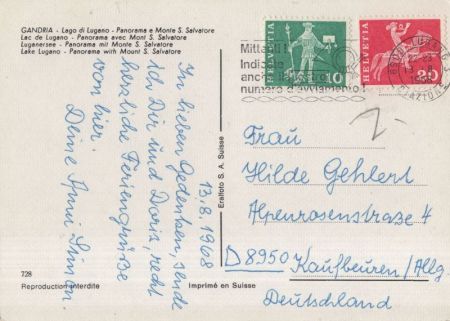 GANDRIA - Lago di Lugano - Panorama e Monte S. Salvatore
Lac de Lugano - Panorama avec Mont S. Salvatore
Luganersee - Panorama mit Monte S. Salvatore
Lake Lugano - Panorama with Mount S. Salvatore
13.8.1968
In lieben Gedenken, sende
ich Dir und Doris, recht
herzliche Feriengrüße
von hier.
Deine Anni
728
Reproduction interdite
Imprimé en Suisse
Eralfoto S. A. Suisse
HELVETIA
10
HELVETIA
20
Mittente!
Indicate
anche il vostro
numero d'avviamento!
Frau
Hilde Gehlert
Alpenrosenstraße 4
D 8950 Kaufbeuren/Allg.
Deutschland